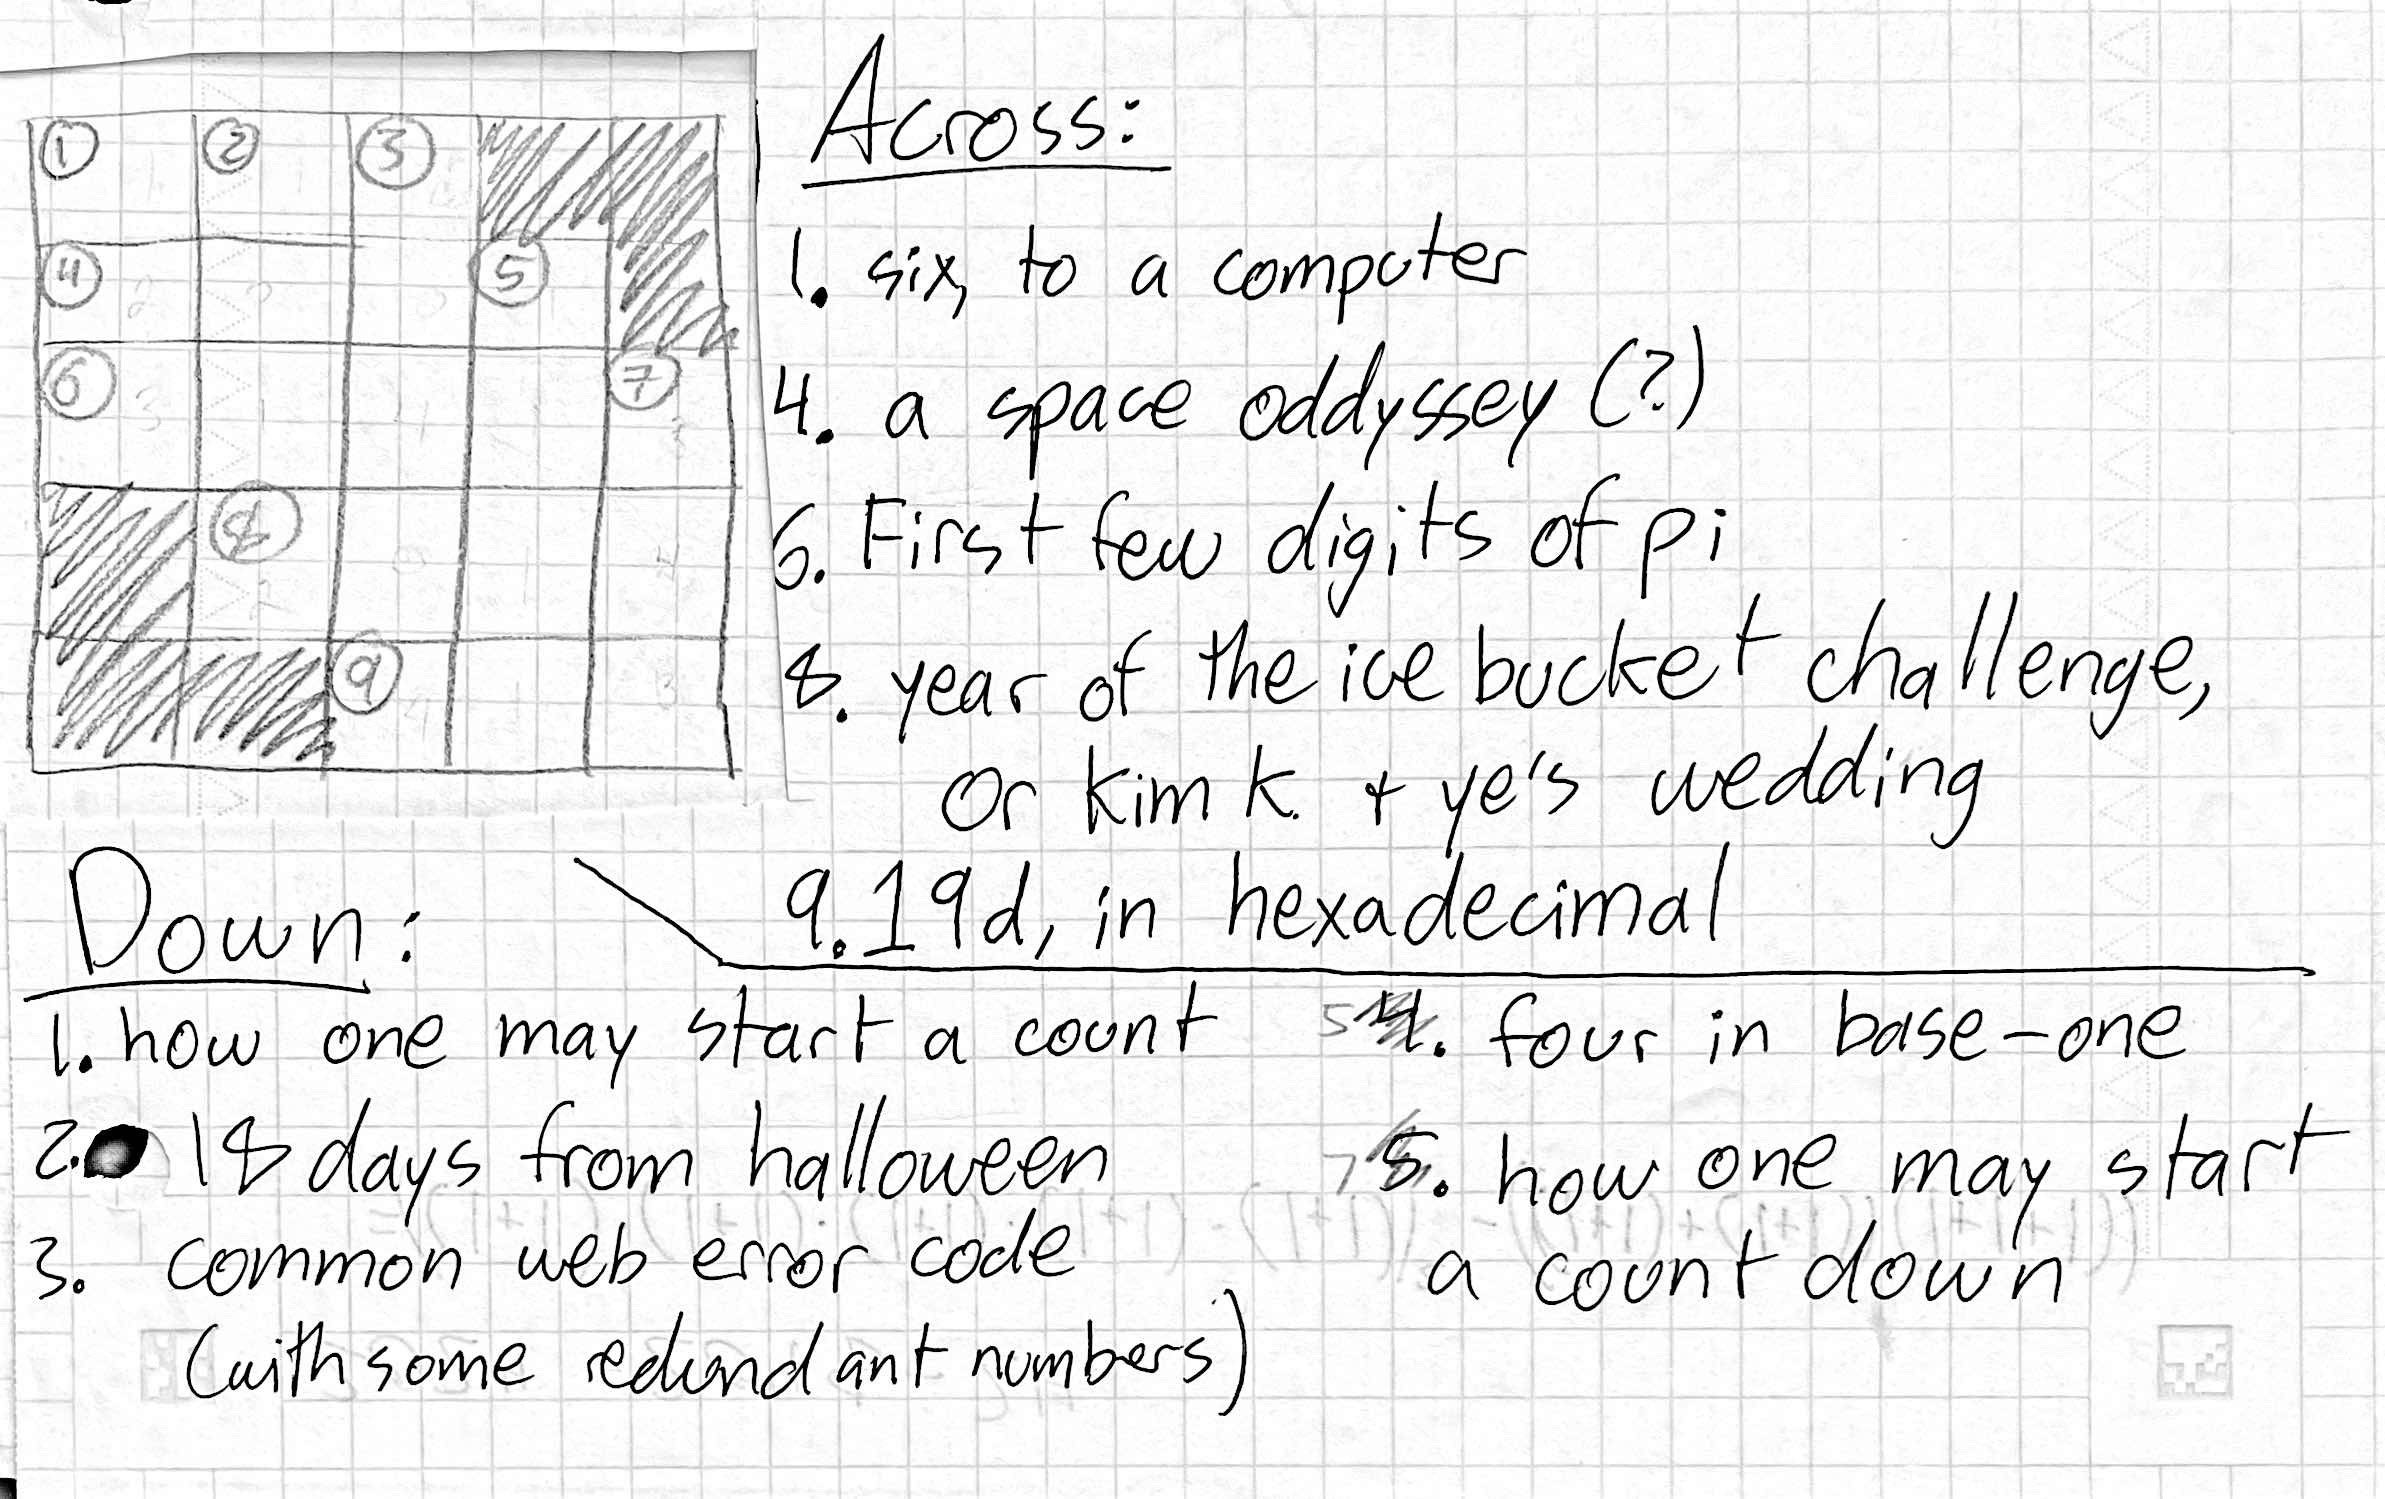 1 2 3
4 5
6 7
8
9
Across:
1. six, to a computer
4. a space oddyssey (?)
6. First few digits of pi
8. year of the ice bucket challenge,
or kim k. + ye's wedding
9. 19d, in hexadecimal
Down:
1. how one may start a count
2. 18 days from halloween
3. common web error code
(with some redundant numbers)
5 4. four in base-one
7 5. how one may start
a count down